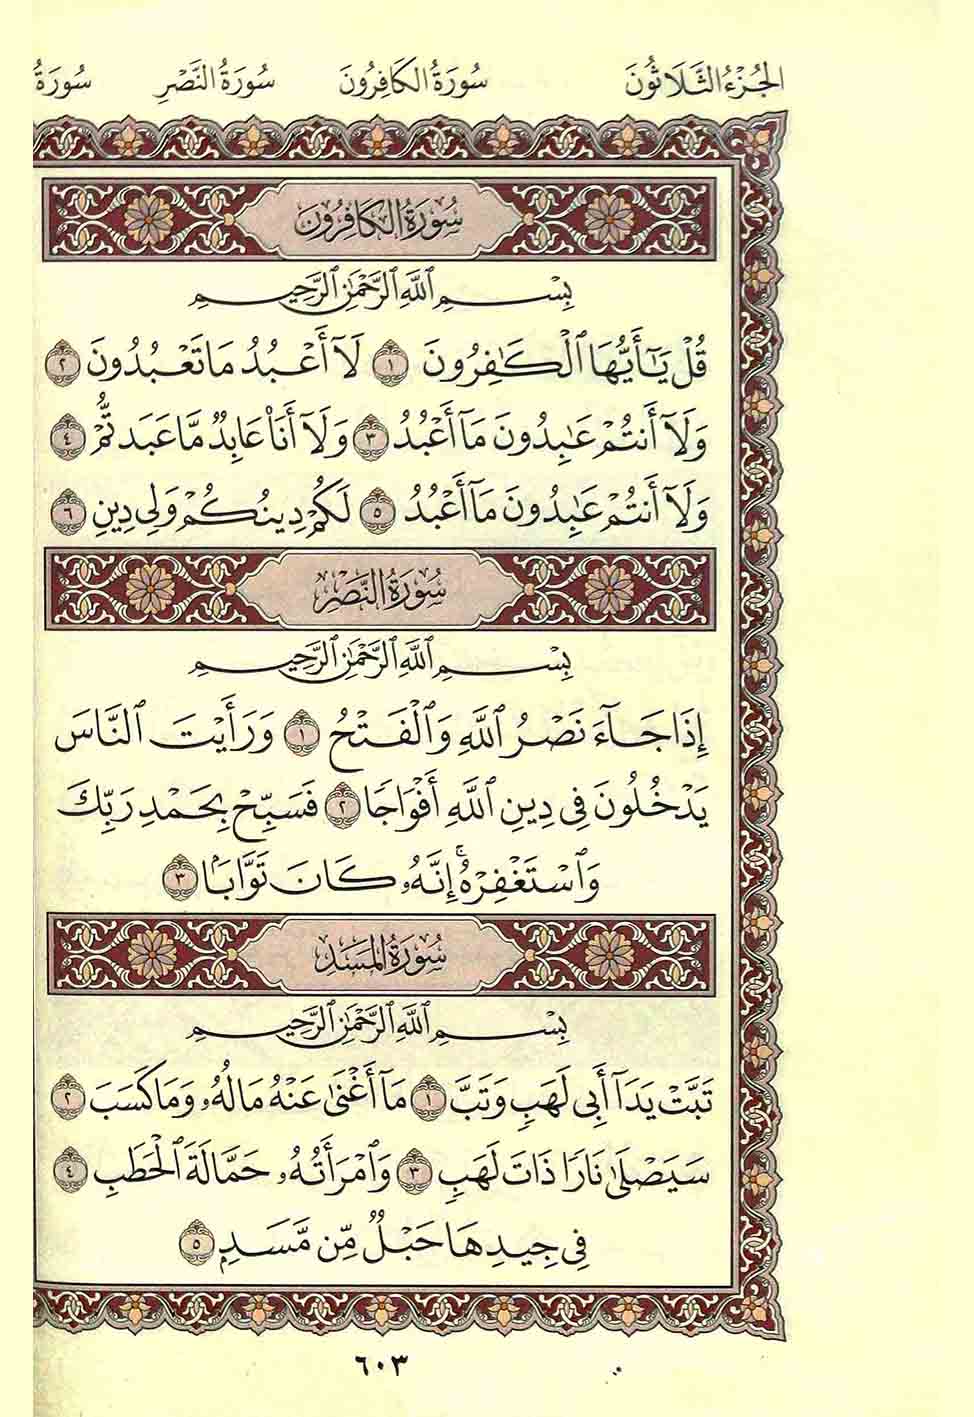 الجُزْءُ الثَّلَاثُونَ سُورَةُ الكَافِرُونَ سُورَةُ النَّصْرِ سُورَةُ
سُورَةُ الكَافِرُونَ
بِسْمِ ٱللَّهِ ٱلرَّحْمَٰنِ ٱلرَّحِيمِ
قُلْ يَٰٓأَيُّهَا ٱلْكَٰفِرُونَ ١ لَآ أَعْبُدُ مَا تَعْبُدُونَ ٢
وَلَآ أَنتُمْ عَٰبِدُونَ مَآ أَعْبُدُ ٣ وَلَآ أَنَا۠ عَابِدٌ مَّا عَبَدتُّمْ ٤
وَلَآ أَنتُمْ عَٰبِدُونَ مَآ أَعْبُدُ ٥ لَكُمْ دِينُكُمْ وَلِىَ دِينِ ٦
سُورَةُ النَّصْرِ
بِسْمِ ٱللَّهِ ٱلرَّحْمَٰنِ ٱلرَّحِيمِ
إِذَا جَآءَ نَصْرُ ٱللَّهِ وَٱلْفَتْحُ ١ وَرَأَيْتَ ٱلنَّاسَ
يَدْخُلُونَ فِى دِينِ ٱللَّهِ أَفْوَاجًا ٢ فَسَبِّحْ بِحَمْدِ رَبِّكَ
وَٱسْتَغْفِرْهُ ۚ إِنَّهُۥ كَانَ تَوَّابًۢا ٣
سُورَةُ المَسَدِ
بِسْمِ ٱللَّهِ ٱلرَّحْمَٰنِ ٱلرَّحِيمِ
تَبَّتْ يَدَآ أَبِى لَهَبٍ وَتَبَّ ١ مَآ أَغْنَىٰ عَنْهُ مَالُهُۥ وَمَا كَسَبَ ٢
سَيَصْلَىٰ نَارًا ذَاتَ لَهَبٍ ٣ وَٱمْرَأَتُهُۥ حَمَّالَةَ ٱلْحَطَبِ ٤
فِى جِيدِهَا حَبْلٌ مِّن مَّسَدٍۭ ٥
٦٠٣